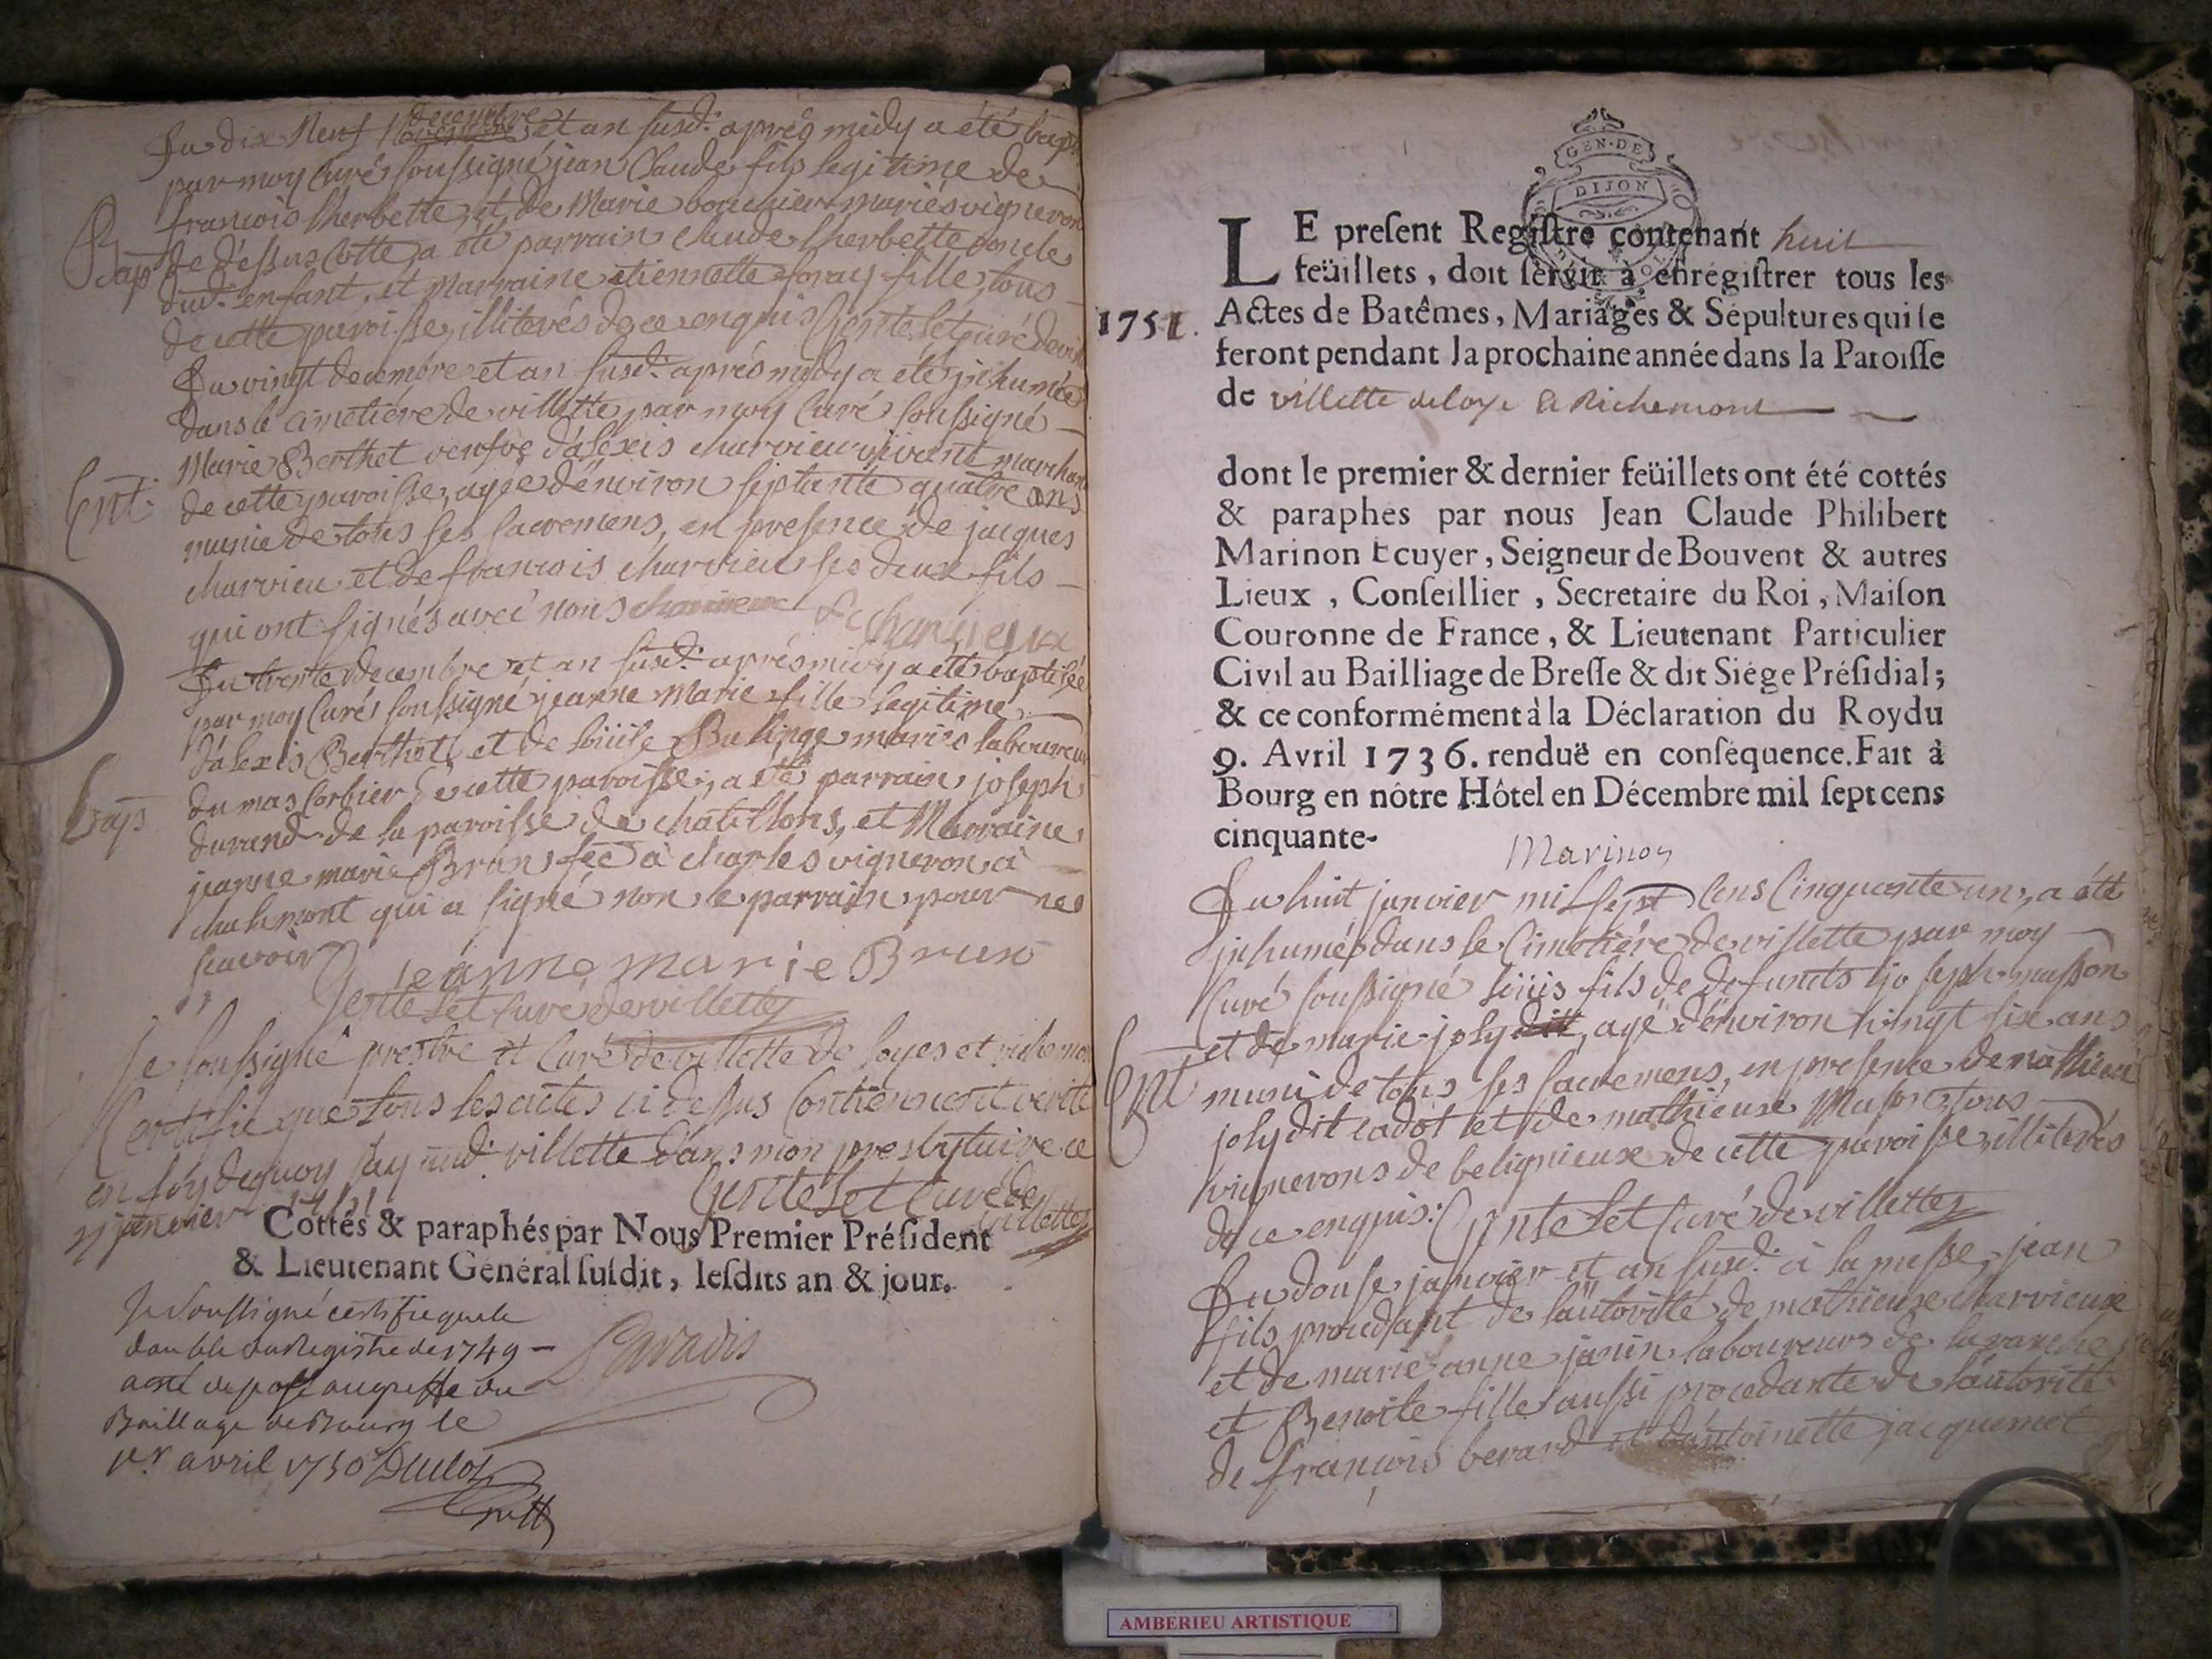 Du dix Neuf decembre et an susd. aprés midy a été bapt
par moy Curé soussigné jean Claude fils legitime de
francois lherbette et de Marie bouchier mariés vigneron
Bap
de dessus Cotte, a été parrain claude lherbette oncle
dud. enfant, et Marraine etiennette fille, tous
de cette paroisse illiterés de ce enquis Curé de
Du vingt decembre et an susd. aprés midy a été jnhumée
dans le cimetiére de villette par moy Curé soussigné
Marie Berthet veufve d'aléxis charvieu vivant marchan
Ent.
de cette paroisse, agée d'environ septante quatre ans
munie de tous ses sacremens, en presence de jacques
charvieu et de francois charvieu ses deux fils
qui ont signés avec nous charvieux fc charvieux
Du trente decembre et an susd. aprés midy a été baptisée
par moy Curé soussigné jeanne Marie fille legitime
d'alexis Berthet, et de loüise Bulinge mariés laboureur
Bap
du mas Corbier de cette paroisse, a été parrain joseph
durand de la paroisse de chatillons, et Marraine
jeanne marie Brun fée à charles vigneron à
qui a signé non le parrain pour ne
scavoir
jeanne marie Brun
Curé de villette
Je soussigné prestre et Curé de villette de loyes et richemon
Certifie que tous les actes ci dessus Contiennent verité
en foy de quoy jay aud. villette dans mon presbytaire ce
janvier 1751
Curé de
villette
Cottés & paraphés par Nous Premier Président
& Lieutenant Général susdit, lesdits an & jour.
Je soussigné certifie que le
double du Registre de 1749
a été deposé au greffe du
Baillage de Bourg le
1er avril 1750
Paradis
GEN·DE
DIJON
LE present Registre contenant huit
feüillets, doit servir à enrégistrer tous les
1751.
Actes de Batêmes, Mariages & Sépultures qui se
feront pendant la prochaine année dans la Paroisse
de villette de loye & Richemont
dont le premier & dernier feüillets ont été cottés
& paraphés par nous Jean Claude Philibert
Marinon Ecuyer, Seigneur de Bouvent & autres
Lieux, Conseillier, Secretaire du Roi, Maison
Couronne de France, & Lieutenant Particulier
Civil au Bailliage de Bresse & dit Siége Présidial;
& ce conformément à la Déclaration du Roy du
9. Avril 1736. renduë en conséquence. Fait à
Bourg en nôtre Hôtel en Décembre mil sept cens
cinquante-
Marinon
Du huit janvier mil sept Cens Cinquante un, a été
jnhumé dans le Cimetiére de villette par moy
Curé soussigné loüis fils de defunts joseph masson
et de marie joly, agé d'environ vingt six ans
Ent
muni de tous ses sacremens, en presence de mathieu
joly dit cadot et de mathieux Masson tous
vignerons de belignieux de cette paroisse, illiterés
de ce enquis: Curé de villette
Du douse janvier et an susd. à la messe, jean
fils procedant de l'autorité de mathieux charvieux
et de marie anne janin laboureurs de
et Benoite fille aussi procedante de l'autorité
de françois berard et d'antoinette jacquemet
AMBERIEU ARTISTIQUE